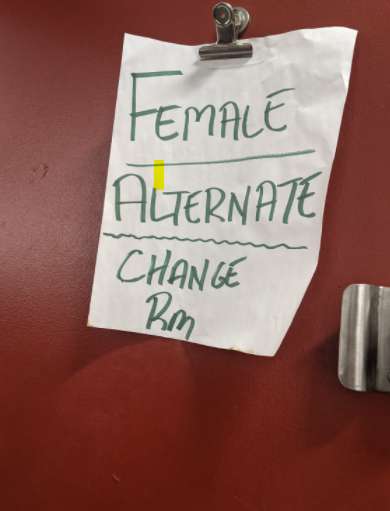 FEMALE
ALTERNATE
CHANGE
Rm